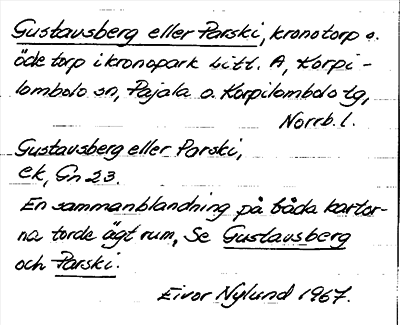 Gustavsberg eller Parski, kronotorp o.
öde torp i kronopark Litt. A, Korpi-
lombolo sn, Pajala o. Korpilombolo tg,
Norrb. l.
Gustavsberg eller Parski,
ek, Gn 23.
En sammanblandning på båda kartor-
na torde ägt rum, Se Gustavsberg
och Parski.
Eivor Nylund 1967.